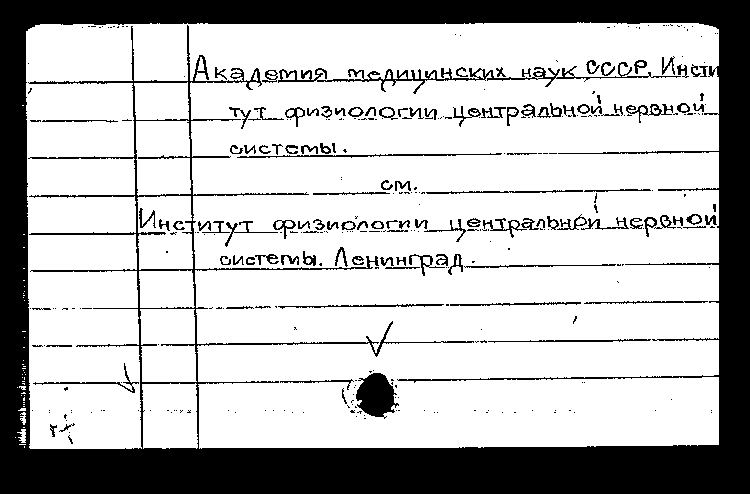 Академия медицинских наук СССР. Инсти
тут физиологии центральной нервной
системы.
см.
Институт физиологии центральной нервной
системы. Ленинград.